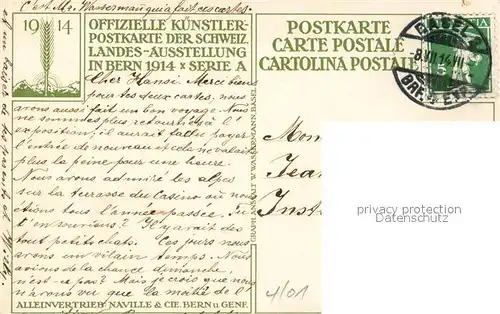 C'est Mr. Wasserman qui a fait ces cartes.
1914
OFFIZIELLE KÜNSTLER-
POSTKARTE DER SCHWEIZ.
LANDES-AUSSTELLUNG
IN BERN 1914 x SERIE A
POSTKARTE
CARTE POSTALE
CARTOLINA POSTALE
BASEL 2
-8.VII.14.VII
BRF. EXP.
5
Cher Hansi. Merci bien
pour tes deux cartes, nous
avons aussi fait un bon voyage. Nous
ne sommes plus retournés à l'
exposition; il aurait fallu payer
l'entrée de nouveau et cela ne valait
plus la peine pour une heure.
Nous avons admiré les alpes
sur la terrasse du Casino où nous
étions tous l'année passée. Tu
t'en souviens? Il y avait des
tout petits chats. Ces jours nous
avons un vilain temps. Nous
avions de la chance dimanche,
n'est-ce pas? Mais je crois que nous
n'avons vu que la moitié de l'
ALLEINVERTRIEB: NAVILLE & CIE. BERN u. GENF.
GRAPH. ANSTALT W. WASSERMANN, BASEL
Mon
Jea
Inst
privacy protection
Datenschutz
4/01